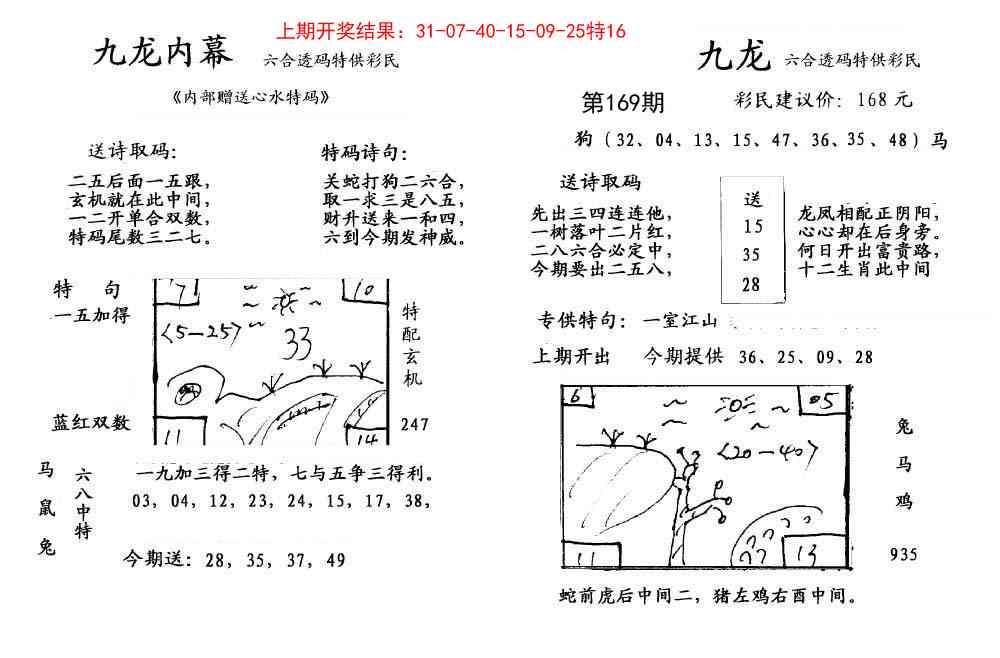 上期开奖结果：31-07-40-15-09-25特16
九龙内幕 六合透码特供彩民
《内部赠送心水特码》
送诗取码：
二五后面一五跟，
玄机就在此中间，
一二开单合双数，
特码尾数三二七。
特码诗句：
关蛇打狗二六合，
取一求三是八五，
财升送来一和四，
六到今期发神威。
特 句
一五加得
蓝红双数
7
10
〈5-25〉
33
11
14
特配玄机
247
马鼠兔
六八中特
一九加三得二特，七与五争三得利。
03，04，12，23，24，15，17，38，
今期送：28，35，37，49
九龙 六合透码特供彩民
第169期 彩民建议价：168元
狗（32、04、13、15、47、36、35、48）马
送诗取码
先出三四连连他，
一树落叶二片红，
二八六合必定中，
今期要出二五八，
送
15
35
28
龙凤相配正阴阳，
心心却在后身旁。
何日开出富贵路，
十二生肖此中间
专供特句：一室江山
上期开出 今期提供 36、25、09、28
6
05
〈20-40〉
11
13
兔
马
鸡
935
蛇前虎后中间二，猪左鸡右酉中间。